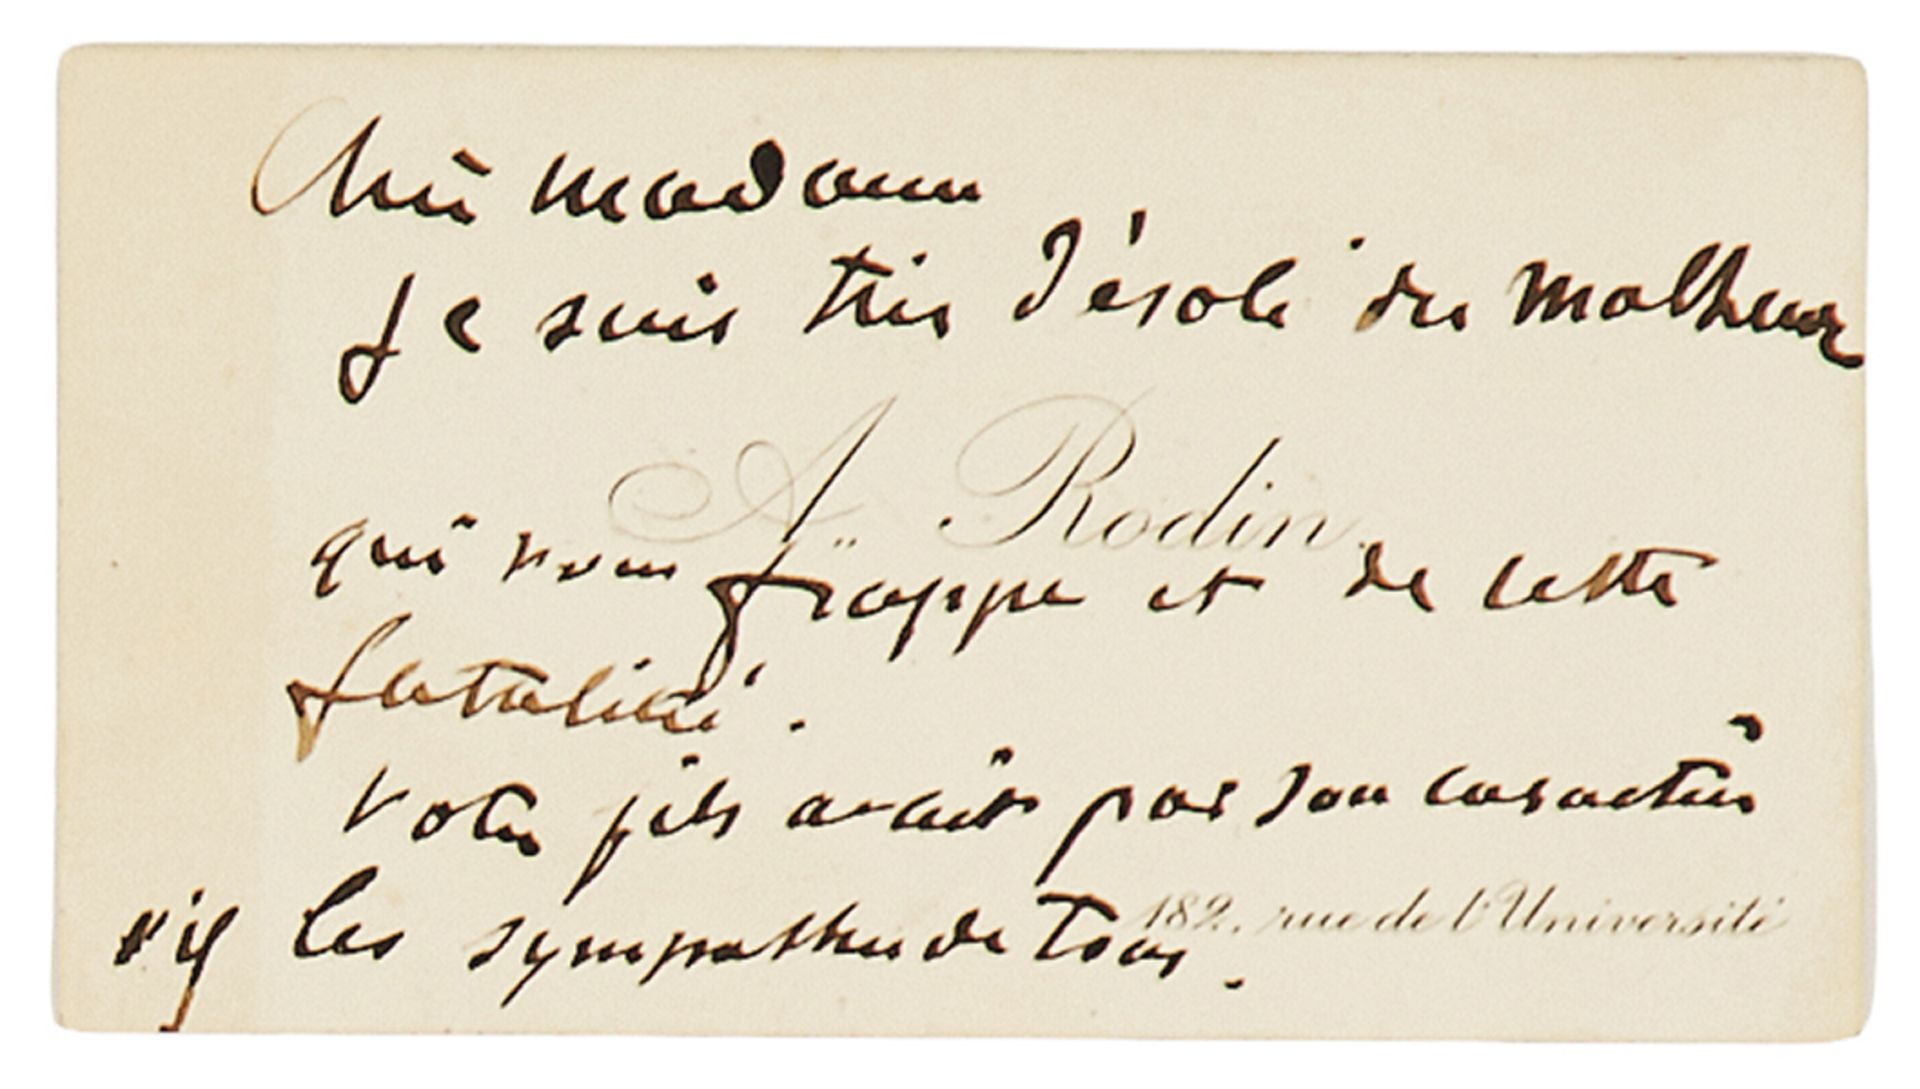 Chère madame
Je suis très désolé du malheur
A. Rodin
qui vous frappe et de cette
fatalité.
votre fils avait par son caractère
les sympathies de tous.
182, rue de l'Université